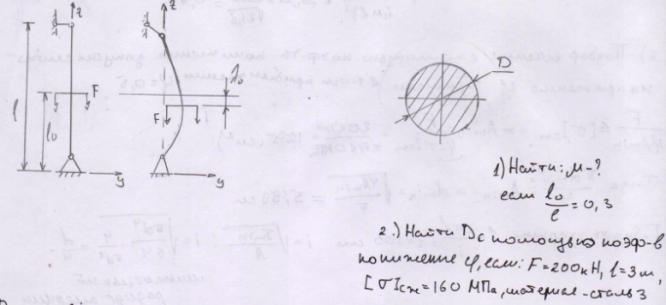 z
z
l
F
l₀
y
F
f₀
y
D
1) Найти: μ-?
если l₀/l = 0,3
2.) Найти D с помощью коэф-в
понижение φ, если: F=200кН, l=3м,
[σ]сж=160 МПа, материал-сталь 3